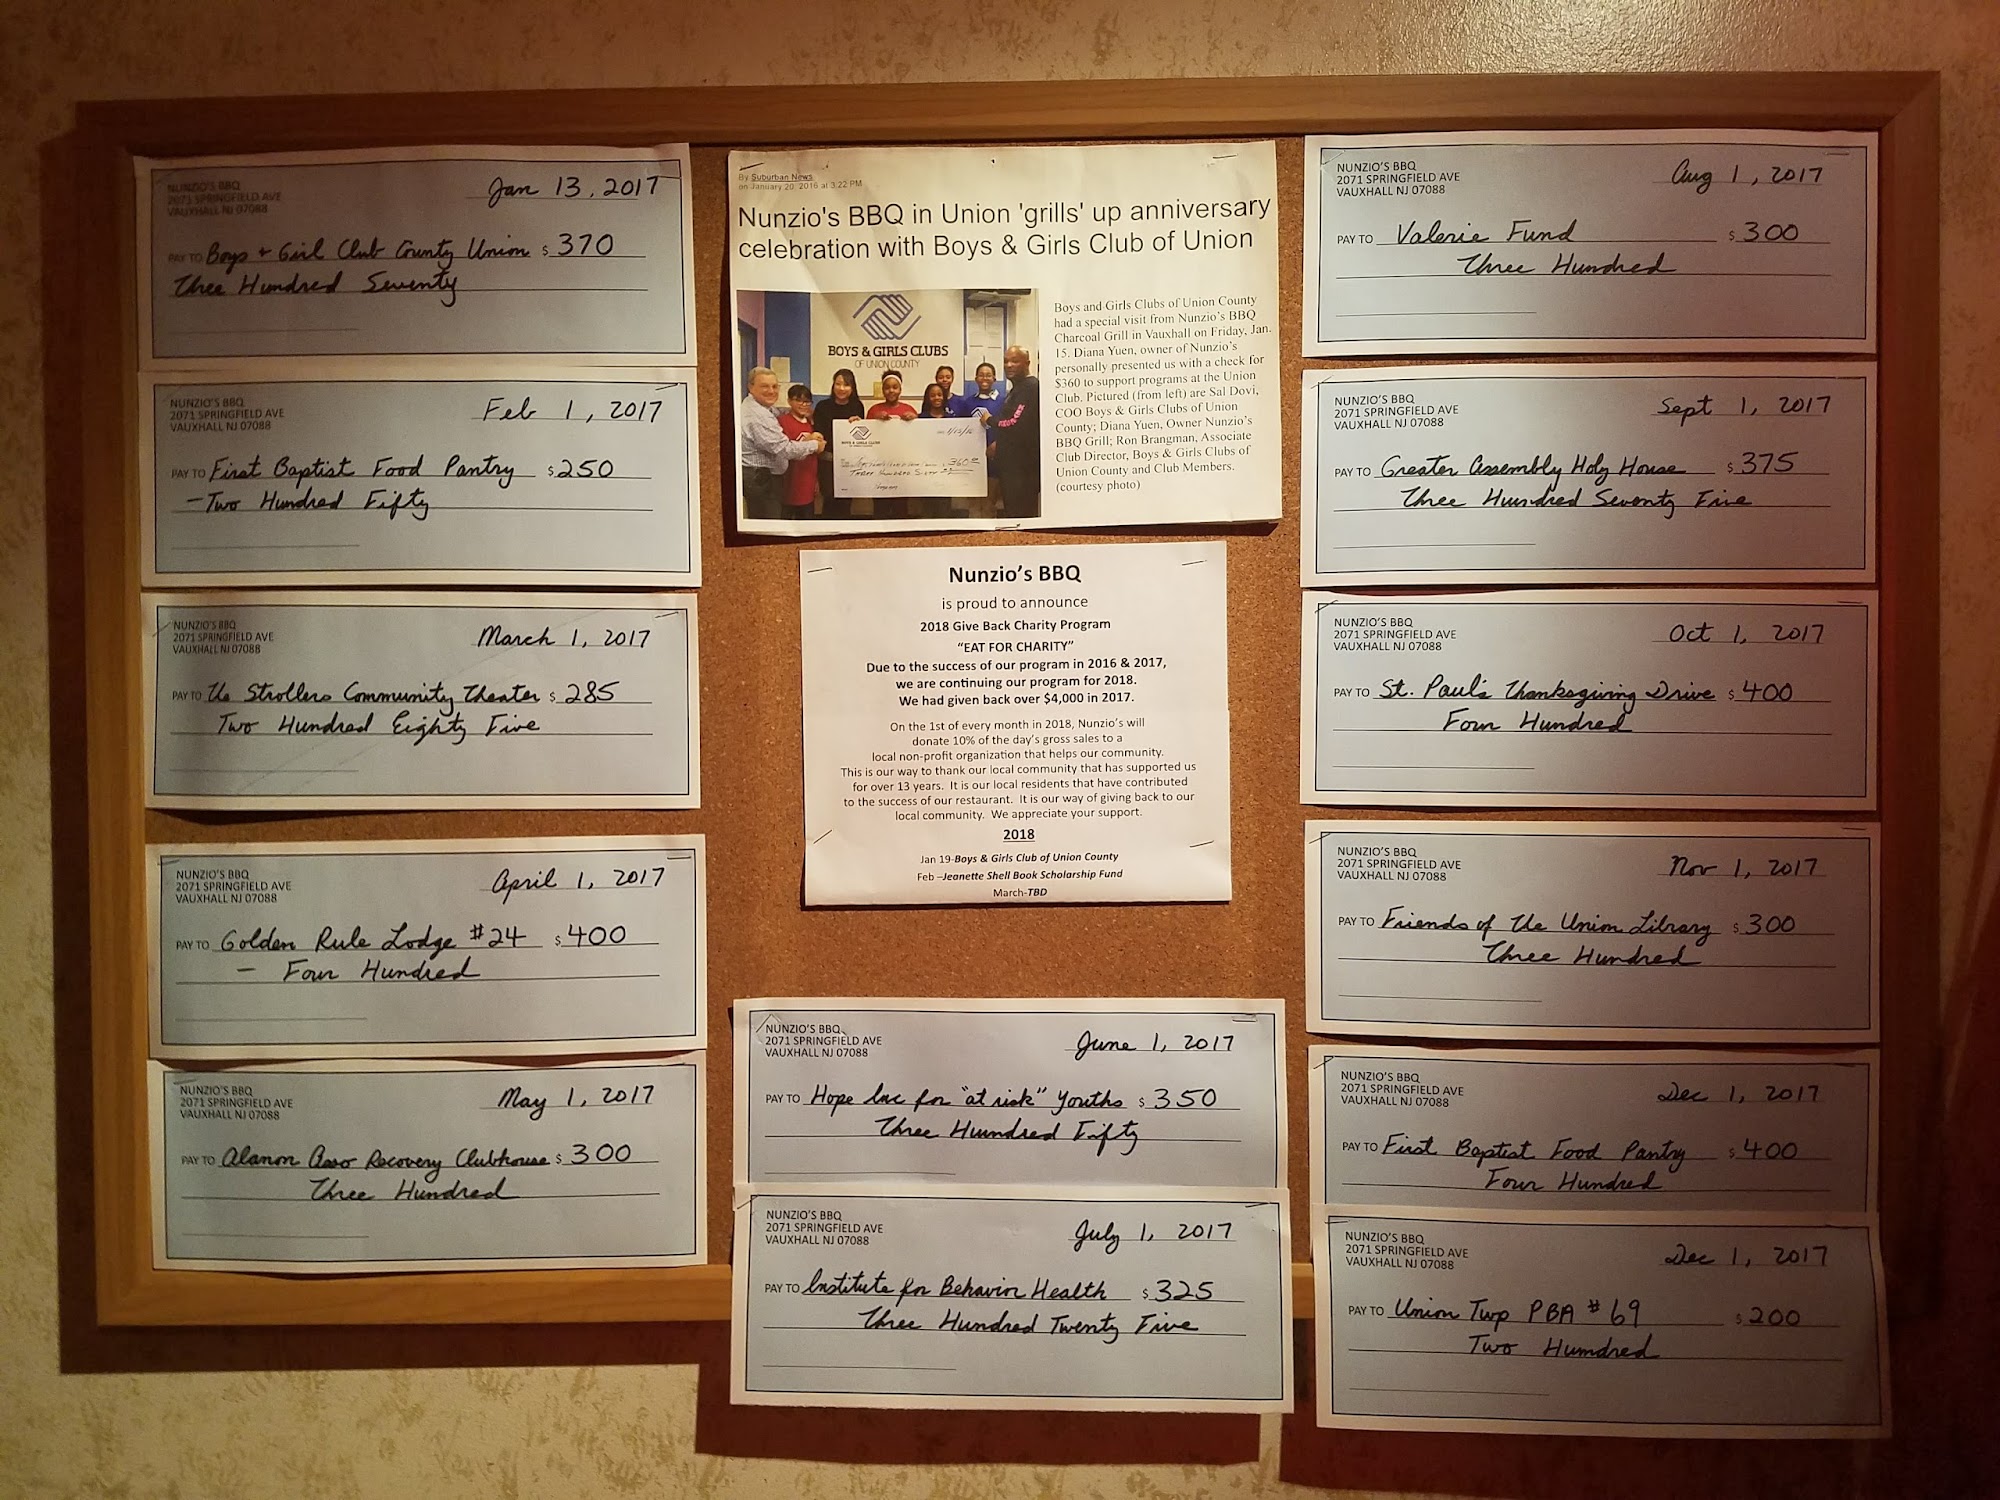 NUNZIO'S BBQ
2071 SPRINGFIELD AVE
VAUXHALL NJ 07088
Jan 13, 2017
PAY TO Boys + Girl Club County Union $ 370
Three Hundred Seventy
NUNZIO'S BBQ
2071 SPRINGFIELD AVE
VAUXHALL NJ 07088
Feb 1, 2017
PAY TO First Baptist Food Pantry $ 250
- Two Hundred Fifty
NUNZIO'S BBQ
2071 SPRINGFIELD AVE
VAUXHALL NJ 07088
March 1, 2017
PAY TO The Strollers Community Theater $ 285
Two Hundred Eighty Five
NUNZIO'S BBQ
2071 SPRINGFIELD AVE
VAUXHALL NJ 07088
April 1, 2017
PAY TO Golden Rule Lodge #24 $ 400
- Four Hundred
NUNZIO'S BBQ
2071 SPRINGFIELD AVE
VAUXHALL NJ 07088
May 1, 2017
PAY TO Alanon Asso Recovery Clubhouse $ 300
Three Hundred
By Suburban News
on January 20, 2016 at 3:22 PM
Nunzio's BBQ in Union 'grills' up anniversary
celebration with Boys & Girls Club of Union
BOYS & GIRLS CLUBS
OF UNION COUNTY
BOYS & GIRLS CLUBS
1/15/16
360
THREE HUNDRED SIXTY
Boys and Girls Clubs of Union County
had a special visit from Nunzio's BBQ
Charcoal Grill in Vauxhall on Friday, Jan.
15. Diana Yuen, owner of Nunzio's
personally presented us with a check for
$360 to support programs at the Union
Club. Pictured (from left) are Sal Dovi,
COO Boys & Girls Clubs of Union
County; Diana Yuen, Owner Nunzio's
BBQ Grill; Ron Brangman, Associate
Club Director, Boys & Girls Clubs of
Union County and Club Members.
(courtesy photo)
Nunzio's BBQ
is proud to announce
2018 Give Back Charity Program
"EAT FOR CHARITY"
Due to the success of our program in 2016 & 2017,
we are continuing our program for 2018.
We had given back over $4,000 in 2017.
On the 1st of every month in 2018, Nunzio's will
donate 10% of the day's gross sales to a
local non-profit organization that helps our community.
This is our way to thank our local community that has supported us
for over 13 years. It is our local residents that have contributed
to the success of our restaurant. It is our way of giving back to our
local community. We appreciate your support.
2018
Jan 19-Boys & Girls Club of Union County
Feb –Jeanette Shell Book Scholarship Fund
March-TBD
NUNZIO'S BBQ
2071 SPRINGFIELD AVE
VAUXHALL NJ 07088
June 1, 2017
PAY TO Hope Inc for "at risk" Youths $ 350
Three Hundred Fifty
NUNZIO'S BBQ
2071 SPRINGFIELD AVE
VAUXHALL NJ 07088
July 1, 2017
PAY TO Institute for Behavior Health $ 325
Three Hundred Twenty Five
NUNZIO'S BBQ
2071 SPRINGFIELD AVE
VAUXHALL NJ 07088
Aug 1, 2017
PAY TO Valerie Fund $ 300
Three Hundred
NUNZIO'S BBQ
2071 SPRINGFIELD AVE
VAUXHALL NJ 07088
Sept 1, 2017
PAY TO Greater Assembly Holy House $ 375
Three Hundred Seventy Five
NUNZIO'S BBQ
2071 SPRINGFIELD AVE
VAUXHALL NJ 07088
Oct 1, 2017
PAY TO St. Paul's Thanksgiving Drive $ 400
Four Hundred
NUNZIO'S BBQ
2071 SPRINGFIELD AVE
VAUXHALL NJ 07088
Nov 1, 2017
PAY TO Friends of the Union Library $ 300
Three Hundred
NUNZIO'S BBQ
2071 SPRINGFIELD AVE
VAUXHALL NJ 07088
Dec 1, 2017
PAY TO First Baptist Food Pantry $ 400
Four Hundred
NUNZIO'S BBQ
2071 SPRINGFIELD AVE
VAUXHALL NJ 07088
Dec 1, 2017
PAY TO Union Twp PBA #69 $ 200
Two Hundred